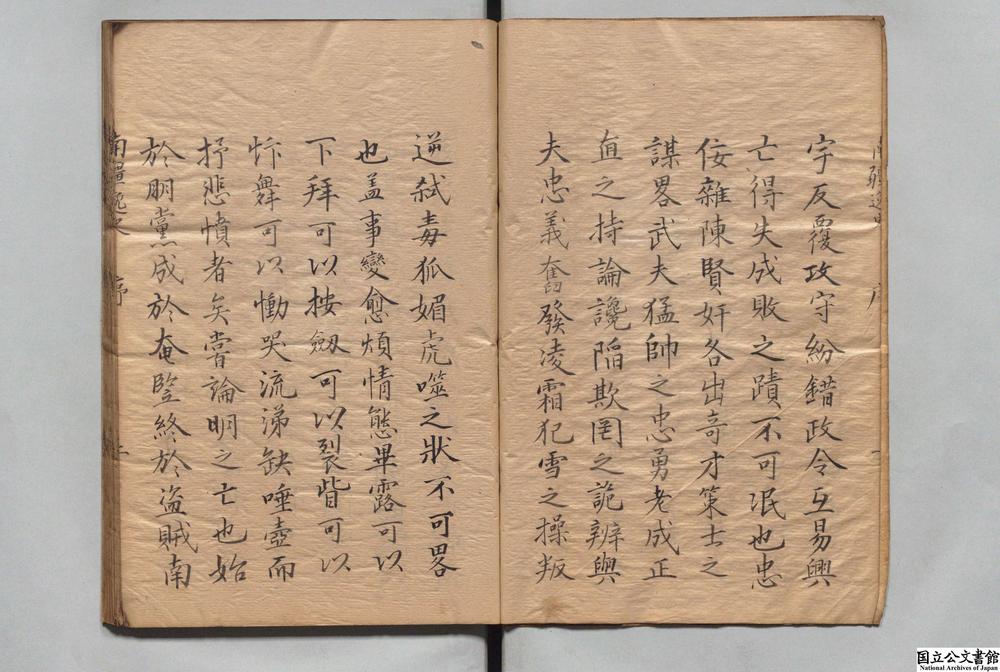 宇反覆攻守紛錯政令互易興
亡得失成敗之蹟不可泯也忠
佞雜陳賢奸各出奇才策士之
謀畧武夫猛帥之忠勇老成正
直之持論讒陷欺罔之詭辨與
夫忠義奮發凌霜犯雪之操叛
逆弑毒狐媚虎噬之狀不可畧
也盖事變愈煩情態畢露可以
下拜可以按劔可以裂眥可以
忭舞可以慟哭流涕缺唾壺而
抒悲憤者矣嘗論明之亡也始
於朋黨成於奄竪終於盜賊南
南疆逸史 序
国立公文書館
National Archives of Japan